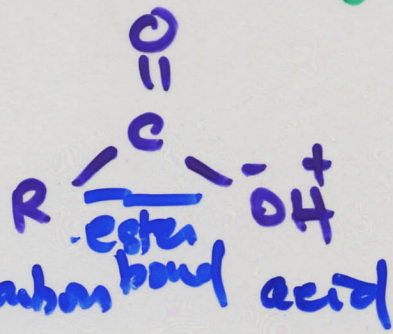 O
C
R - OH +
ester
bond acid